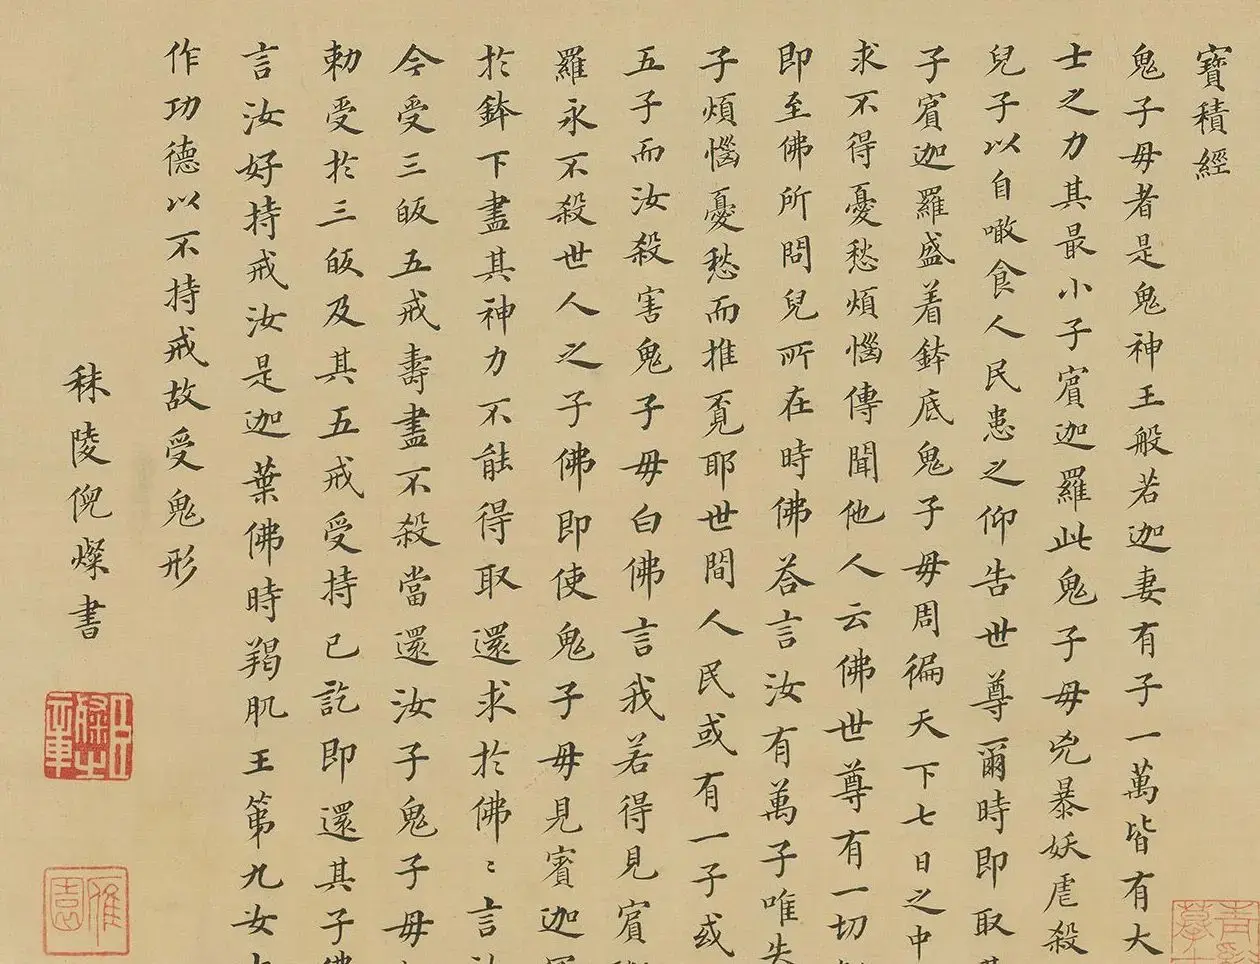 寶積經
鬼子毋者是鬼神王般若迦妻有子一萬皆有大
士之力其最小子賔迦羅此鬼子毋兇暴妖虐殺
兒子以自噉食人民患之仰告世尊爾時即取
子賔迦羅盛着鉢底鬼子毋周徧天下七日之中
求不得憂愁煩惱傳聞他人云佛世尊有一切
即至佛所問兒所在時佛荅言汝有萬子唯失
子煩惱憂愁而推覔耶世間人民或有一子或
五子而汝殺害鬼子毋白佛言我若得見賔
羅永不殺世人之子佛即使鬼子毋見賓迦
於鉢下盡其神力不能得取還求於佛〻言
今受三皈五戒壽盡不殺當還汝子鬼子毋
勑受於三皈及其五戒受持已訖即還其子
言汝好持戒汝是迦葉佛時羯肌王第九女
作功德以不持戒故受鬼形
秣陵倪燦書